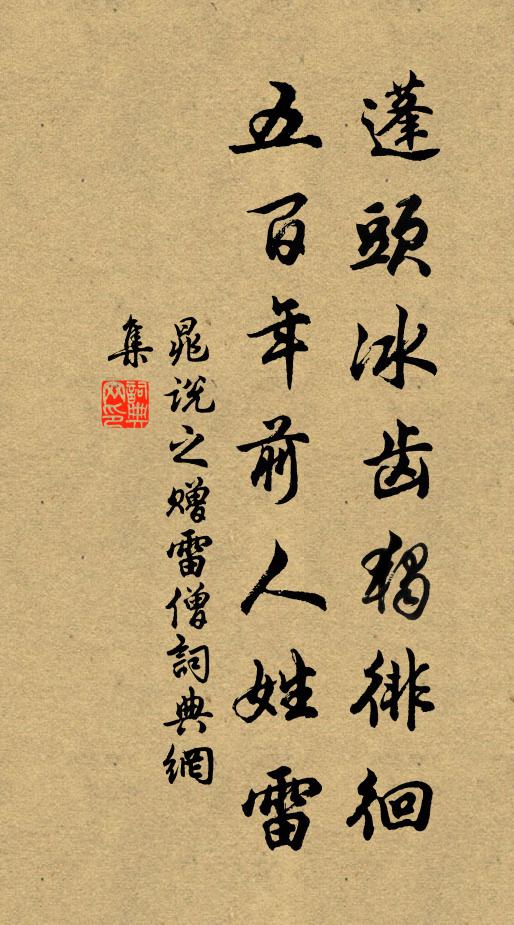 蓬頭冰齒獨徘徊
五百年前人姓雷
晁說之贈雷僧詞典網
集
詞典
网印